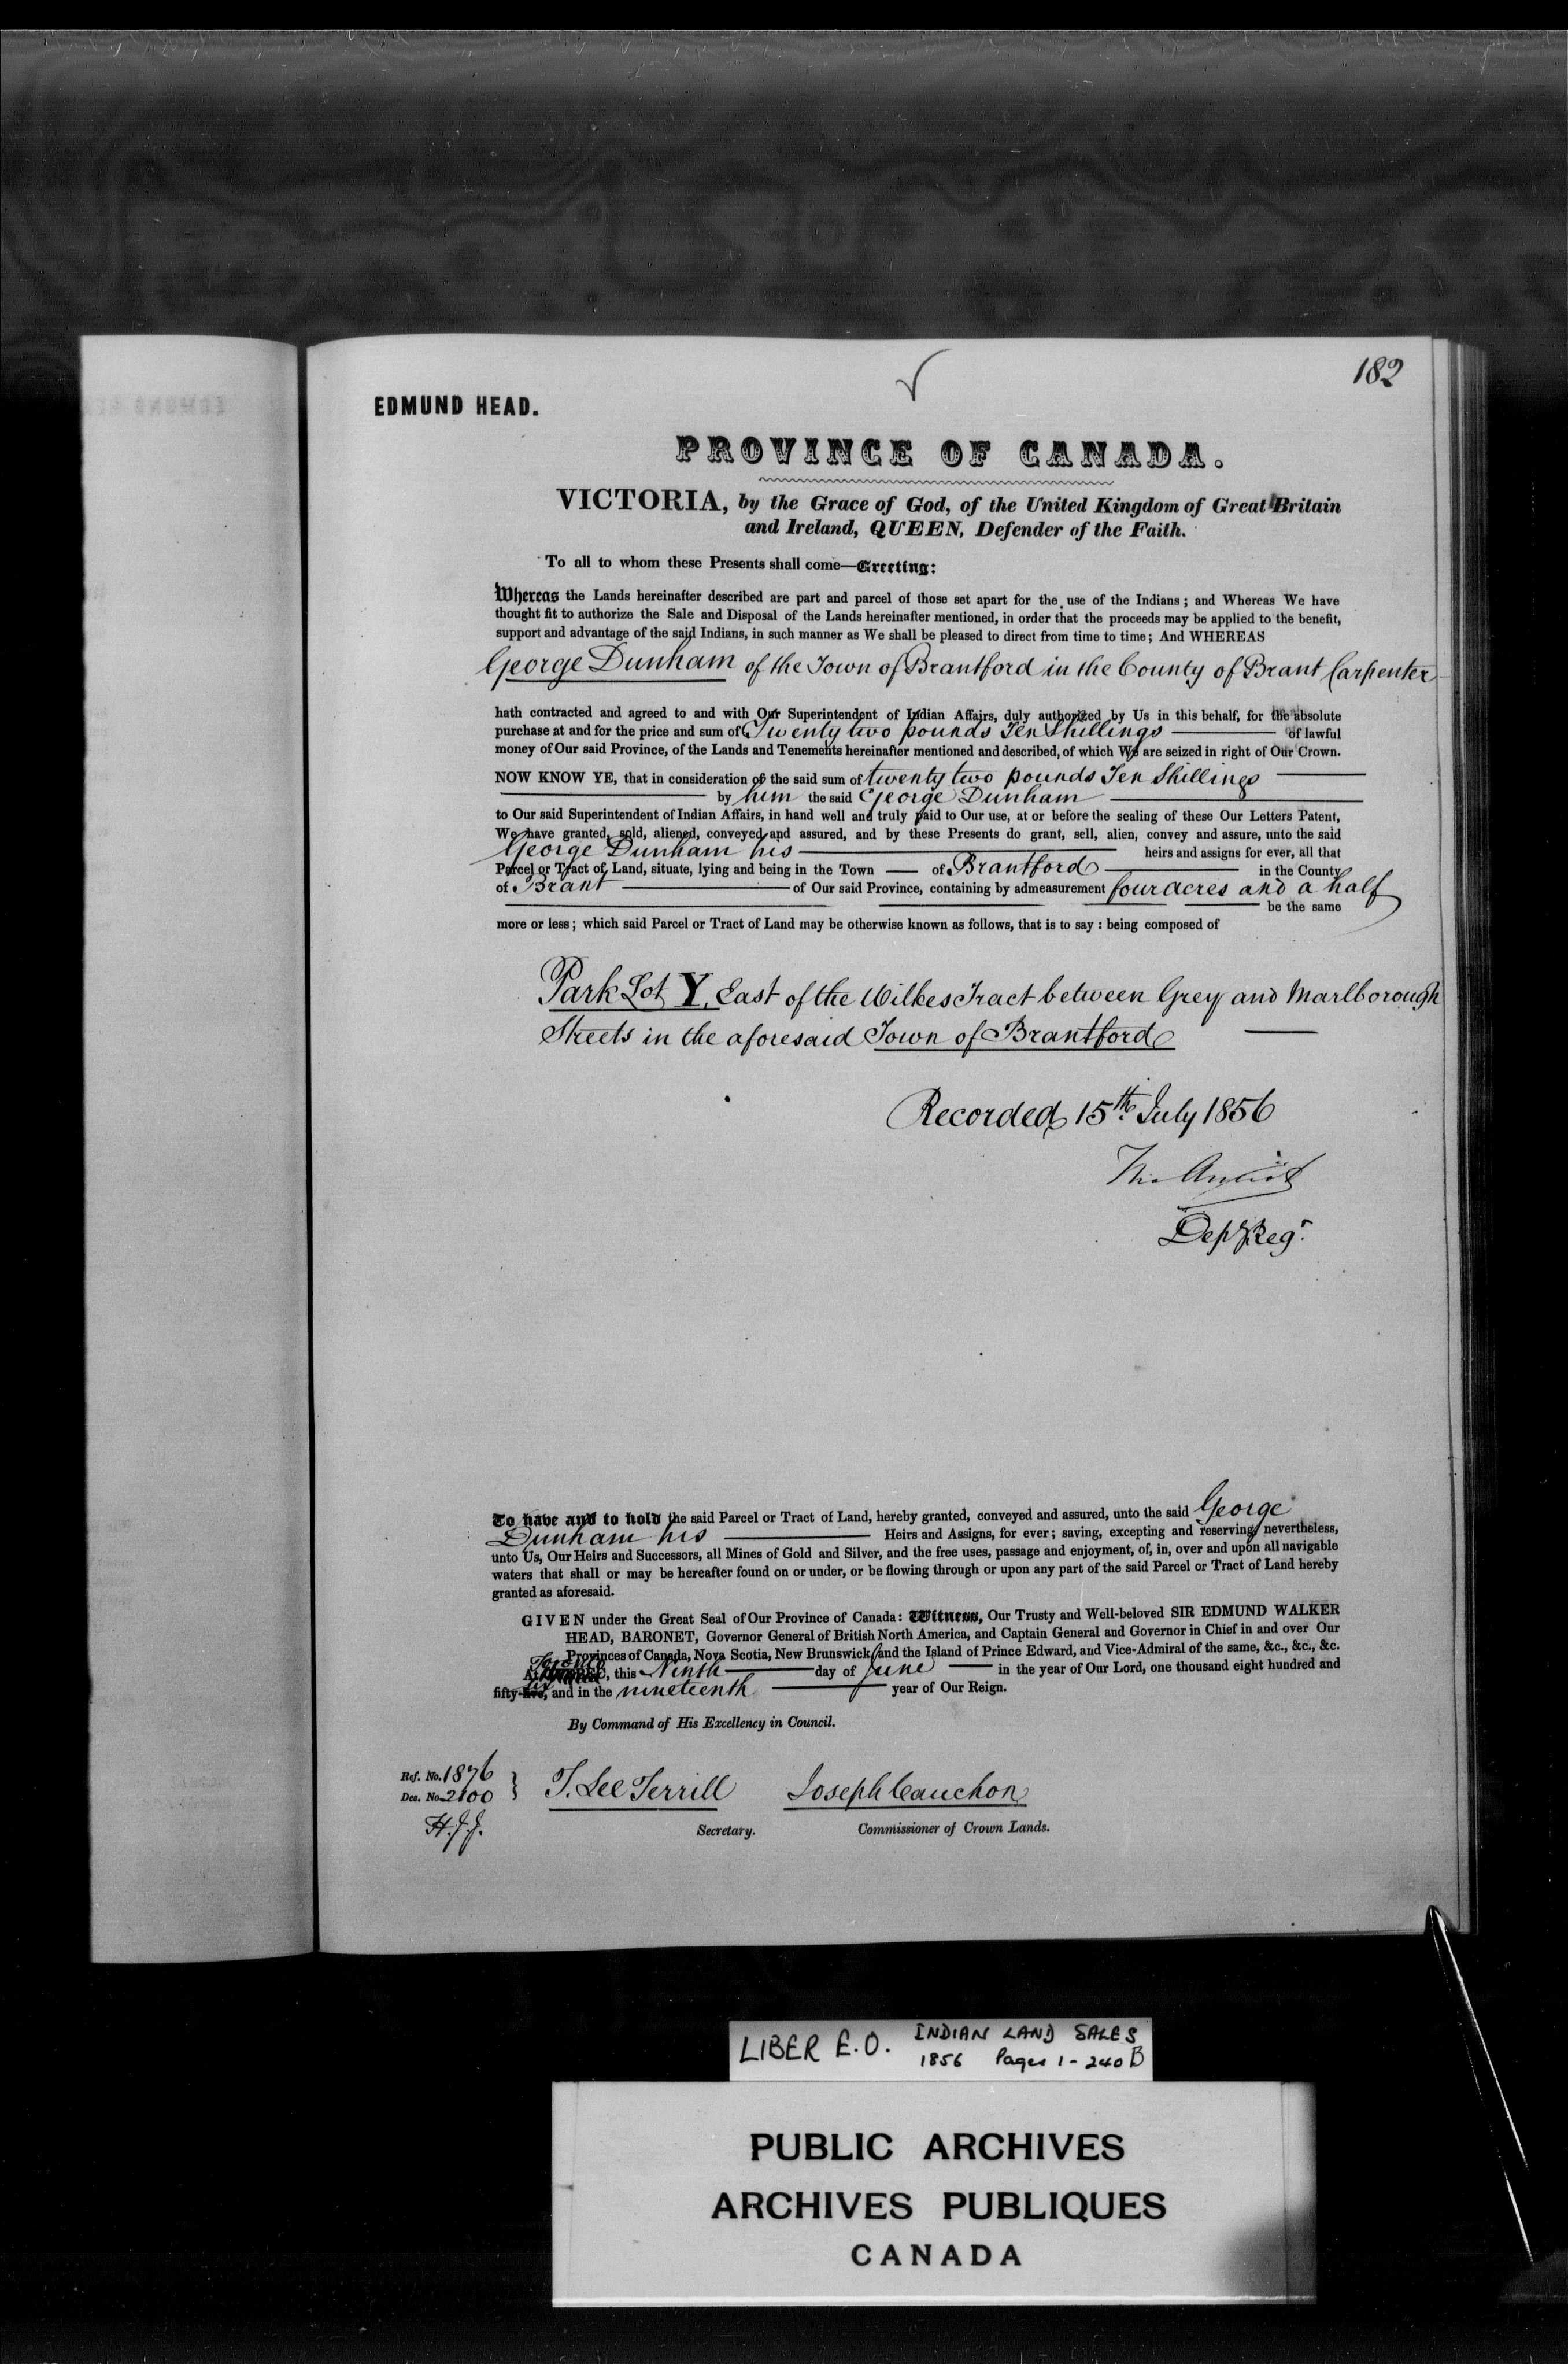 182
EDMUND HEAD.
PROVINCE OF CANADA.
VICTORIA, by the Grace of God, of the United Kingdom of Great Britain
and Ireland, QUEEN, Defender of the Faith.
To all to whom these Presents shall come—Greeting:
Whereas the Lands hereinafter described are part and parcel of those set apart for the use of the Indians; and Whereas We have
thought fit to authorize the Sale and Disposal of the Lands hereinafter mentioned, in order that the proceeds may be applied to the benefit,
support and advantage of the said Indians, in such manner as We shall be pleased to direct from time to time; And WHEREAS
George Dunham of the Town of Brantford in the County of Brant Carpenter
hath contracted and agreed to and with Our Superintendent of Indian Affairs, duly authorized by Us in this behalf, for the absolute
purchase at and for the price and sum of Twenty two pounds Ten Shillings of lawful
money of Our said Province, of the Lands and Tenements hereinafter mentioned and described, of which We are seized in right of Our Crown.
NOW KNOW YE, that in consideration of the said sum of twenty two pounds Ten Shillings
by him the said George Dunham
to Our said Superintendent of Indian Affairs, in hand well and truly paid to Our use, at or before the sealing of these Our Letters Patent,
We have granted, sold, aliened, conveyed and assured, and by these Presents do grant, sell, alien, convey and assure, unto the said
George Dunham his heirs and assigns for ever, all that
Parcel or Tract of Land, situate, lying and being in the Town of Brantford in the County
of Brant of Our said Province, containing by admeasurement four acres and a half
be the same
more or less; which said Parcel or Tract of Land may be otherwise known as follows, that is to say: being composed of
Park Lot Y. East of the Wilkes Tract between Grey and Marlborough
Streets in the aforesaid Town of Brantford
Recorded 15th July 1856
Tho Amiot
Depy Regr.
To have and to hold the said Parcel or Tract of Land, hereby granted, conveyed and assured, unto the said George
Dunham his Heirs and Assigns, for ever; saving, excepting and reserving, nevertheless,
unto Us, Our Heirs and Successors, all Mines of Gold and Silver, and the free uses, passage and enjoyment, of, in, over and upon all navigable
waters that shall or may be hereafter found on or under, or be flowing through or upon any part of the said Parcel or Tract of Land hereby
granted as aforesaid.
GIVEN under the Great Seal of Our Province of Canada: Witness, Our Trusty and Well-beloved SIR EDMUND WALKER
HEAD, BARONET, Governor General of British North America, and Captain General and Governor in Chief in and over Our
Provinces of Canada, Nova Scotia, New Brunswick, and the Island of Prince Edward, and Vice-Admiral of the same, &c., &c., &c.
Toronto
At QUEBEC, this Ninth day of June in the year of Our Lord, one thousand eight hundred and
six
fifty-five, and in the nineteenth year of Our Reign.
By Command of His Excellency in Council.
Ref. No. 1876
Des. No. 2100
H.J.J.
T. Lee Terrill Joseph Cauchon
Secretary. Commissioner of Crown Lands.
LIBER E.O. INDIAN LAND SALES
1856 Pages 1-240B
PUBLIC ARCHIVES
ARCHIVES PUBLIQUES
CANADA